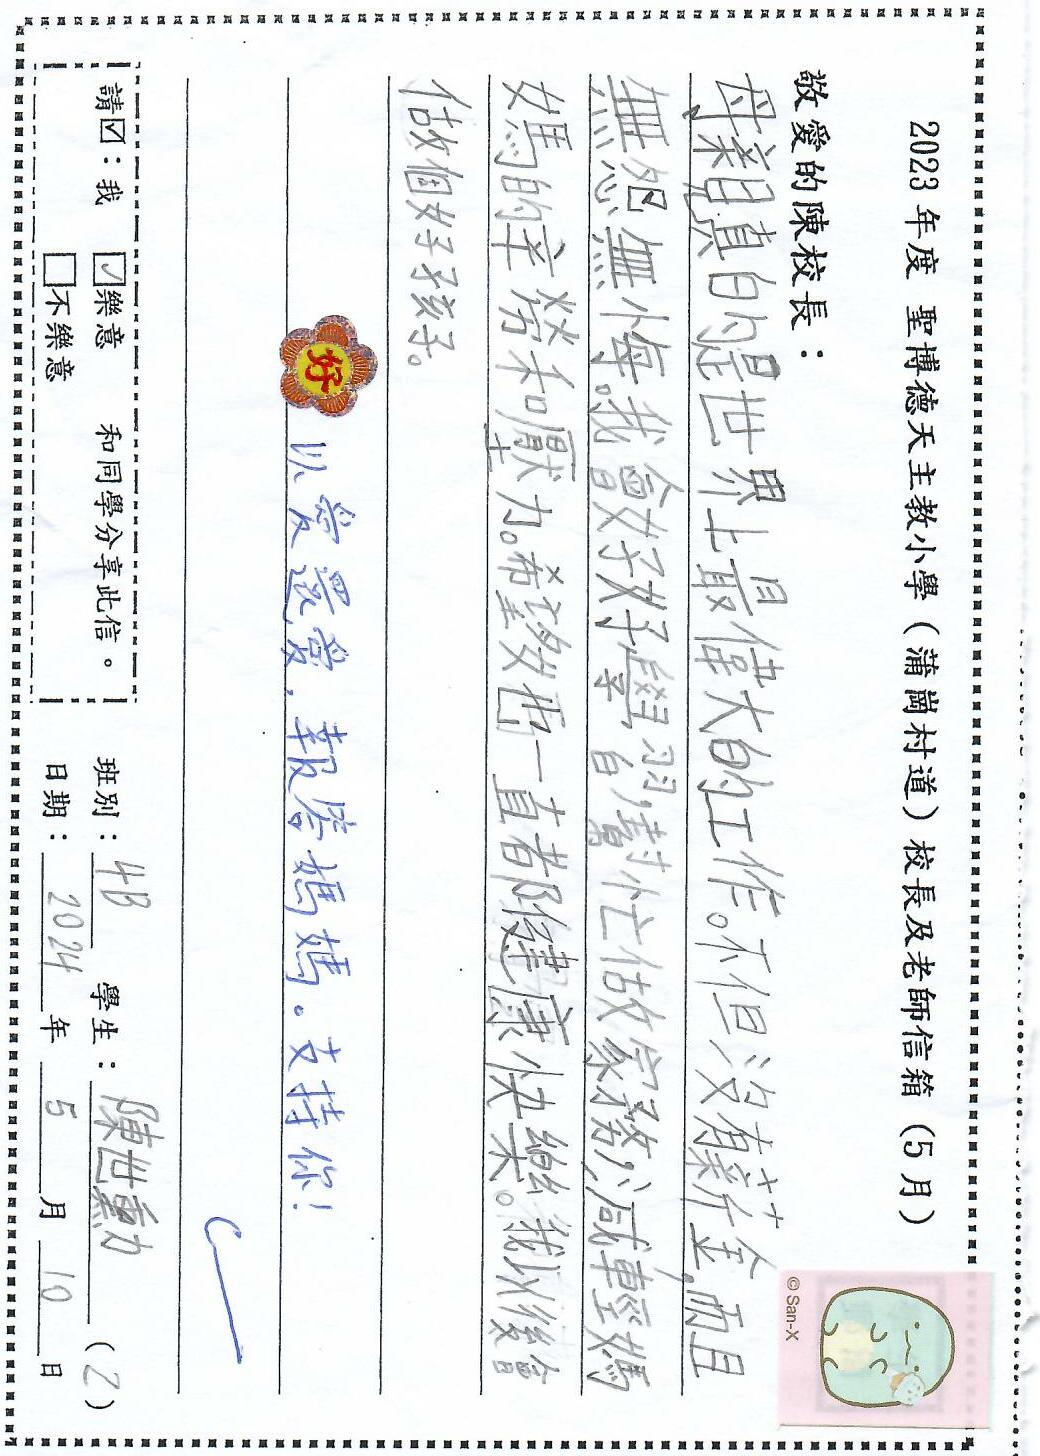 2023年度 聖博德天主教小學（蒲崗村道）校長及老師信箱（5月）
© San-X
敬愛的陳校長：
母親真的是世界上最偉大的工作。不但沒有薪金，而且
無怨無悔。我會好好學習，幫忙做家務，減輕媽
媽的辛勞和壓力。希望她一直都健康快樂。我以後會
做個好孩子。
好 以愛還愛，報答媽媽。支持你！
請☑：我 ☑樂意 和同學分享此信。
□不樂意
班別：4B 學生：陳世勳（2）
日期：2024年5月10日